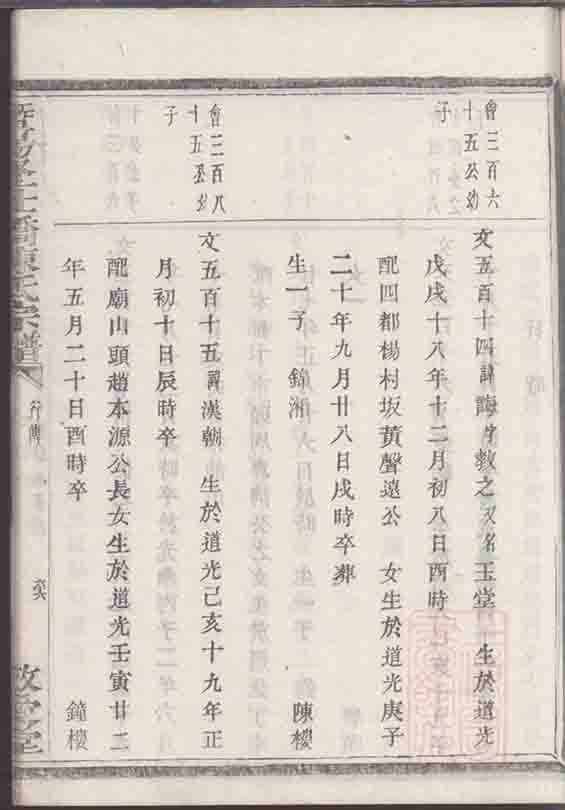 會三百六
十五公幼
子
文五百十四諱誨字教之又名玉堂 生於道光
戊戌十八年十二月初八日酉時
配四都楊村坂黃聲遠公 女生於道光庚子
二十年九月廿八日戌時卒葬
生一子 錦湘 陳樓
會三百八
十五公幼
子
文五百十五諱漢朝 生於道光己亥十九年正
月初十日辰時卒
配廟山頭趙本源公長女生於道光壬寅廿二
年五月二十日酉時卒 鐘樓
氏宗譜
行傳